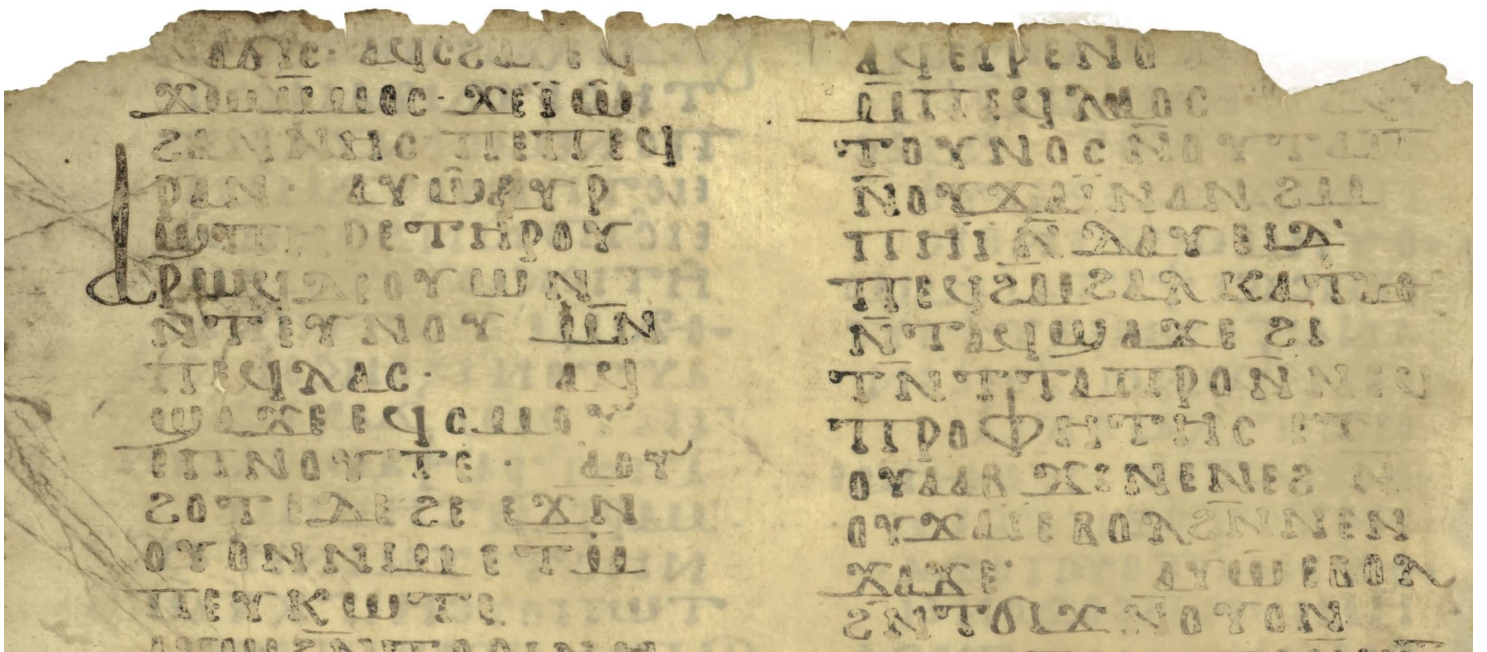 ⲛⲁⲕⲓⲥ· ⲁϥⲥϩⲁⲓⲉϥ
ϫⲱⲙ̅ⲙⲟⲥ· ϫⲉⲓ̈ⲱ
ϩⲁⲛⲛⲏⲥ ⲡⲉⲡⲉϥ
ⲣⲁⲛ· ⲁⲩⲱⲁⲩⲣ̅
ϣⲡⲏⲣⲉⲧⲏⲣⲟⲩ
ⲁⲣⲱϥⲇⲉⲟⲩⲱⲛ
ⲛ̅ⲧⲉⲩⲛⲟⲩ ⲙⲛ̅
ⲡⲉϥⲗⲁⲥ· ⲁϥ
ϣⲁϫⲉⲉϥⲥⲙⲟⲩ
ⲉⲡⲛⲟⲩⲧⲉ· ⲁⲟⲩ
ϩⲟⲧⲉⲇⲉϩⲉ ⲉϫⲛ̅
ⲟⲩⲟⲛⲛⲓⲙⲉⲧⲙ̅
ⲡⲉⲩⲕⲱⲧⲉ
ⲁⲩⲱϩⲛ̅ⲧⲟⲣⲓⲛⲏ
ⲁϥⲉⲓⲣⲉⲛⲟ
ⲙ̅ⲡⲉϥⲗⲁⲟⲥ
ⲧⲟⲩⲛⲟⲥⲛ̅ⲟⲩⲧⲁⲡ
ⲛ̅ⲟⲩϫⲁⲓ̈ⲛⲁⲛϩⲙ̅
ⲡⲏⲓ̈ⲛ̅ⲇⲁⲩⲉⲓⲇ·
ⲡⲉϥϩⲙ̅ϩⲁⲗⲕⲁⲧⲁⲑⲉ
ⲛ̅ⲧⲁϥϣⲁϫⲉϩⲓ
ⲧⲛ̅ⲧⲧⲁⲡⲣⲟⲛ̅ⲛⲉϥ
ⲡⲣⲟⲫⲏⲧⲏⲥ ⲉⲧ
ⲟⲩⲁⲁⲃ ϫⲓⲛⲉⲛⲉϩ ⲛ
ⲟⲩϫⲁⲓⲉⲃⲟⲗϩⲛ̅ⲛⲉⲛ
ϫⲁϫⲉ· ⲁⲩⲱⲉⲃⲟⲗ
ϩⲛ̅ⲧϭⲓϫ ⲛ̅ⲟⲩⲟⲛ